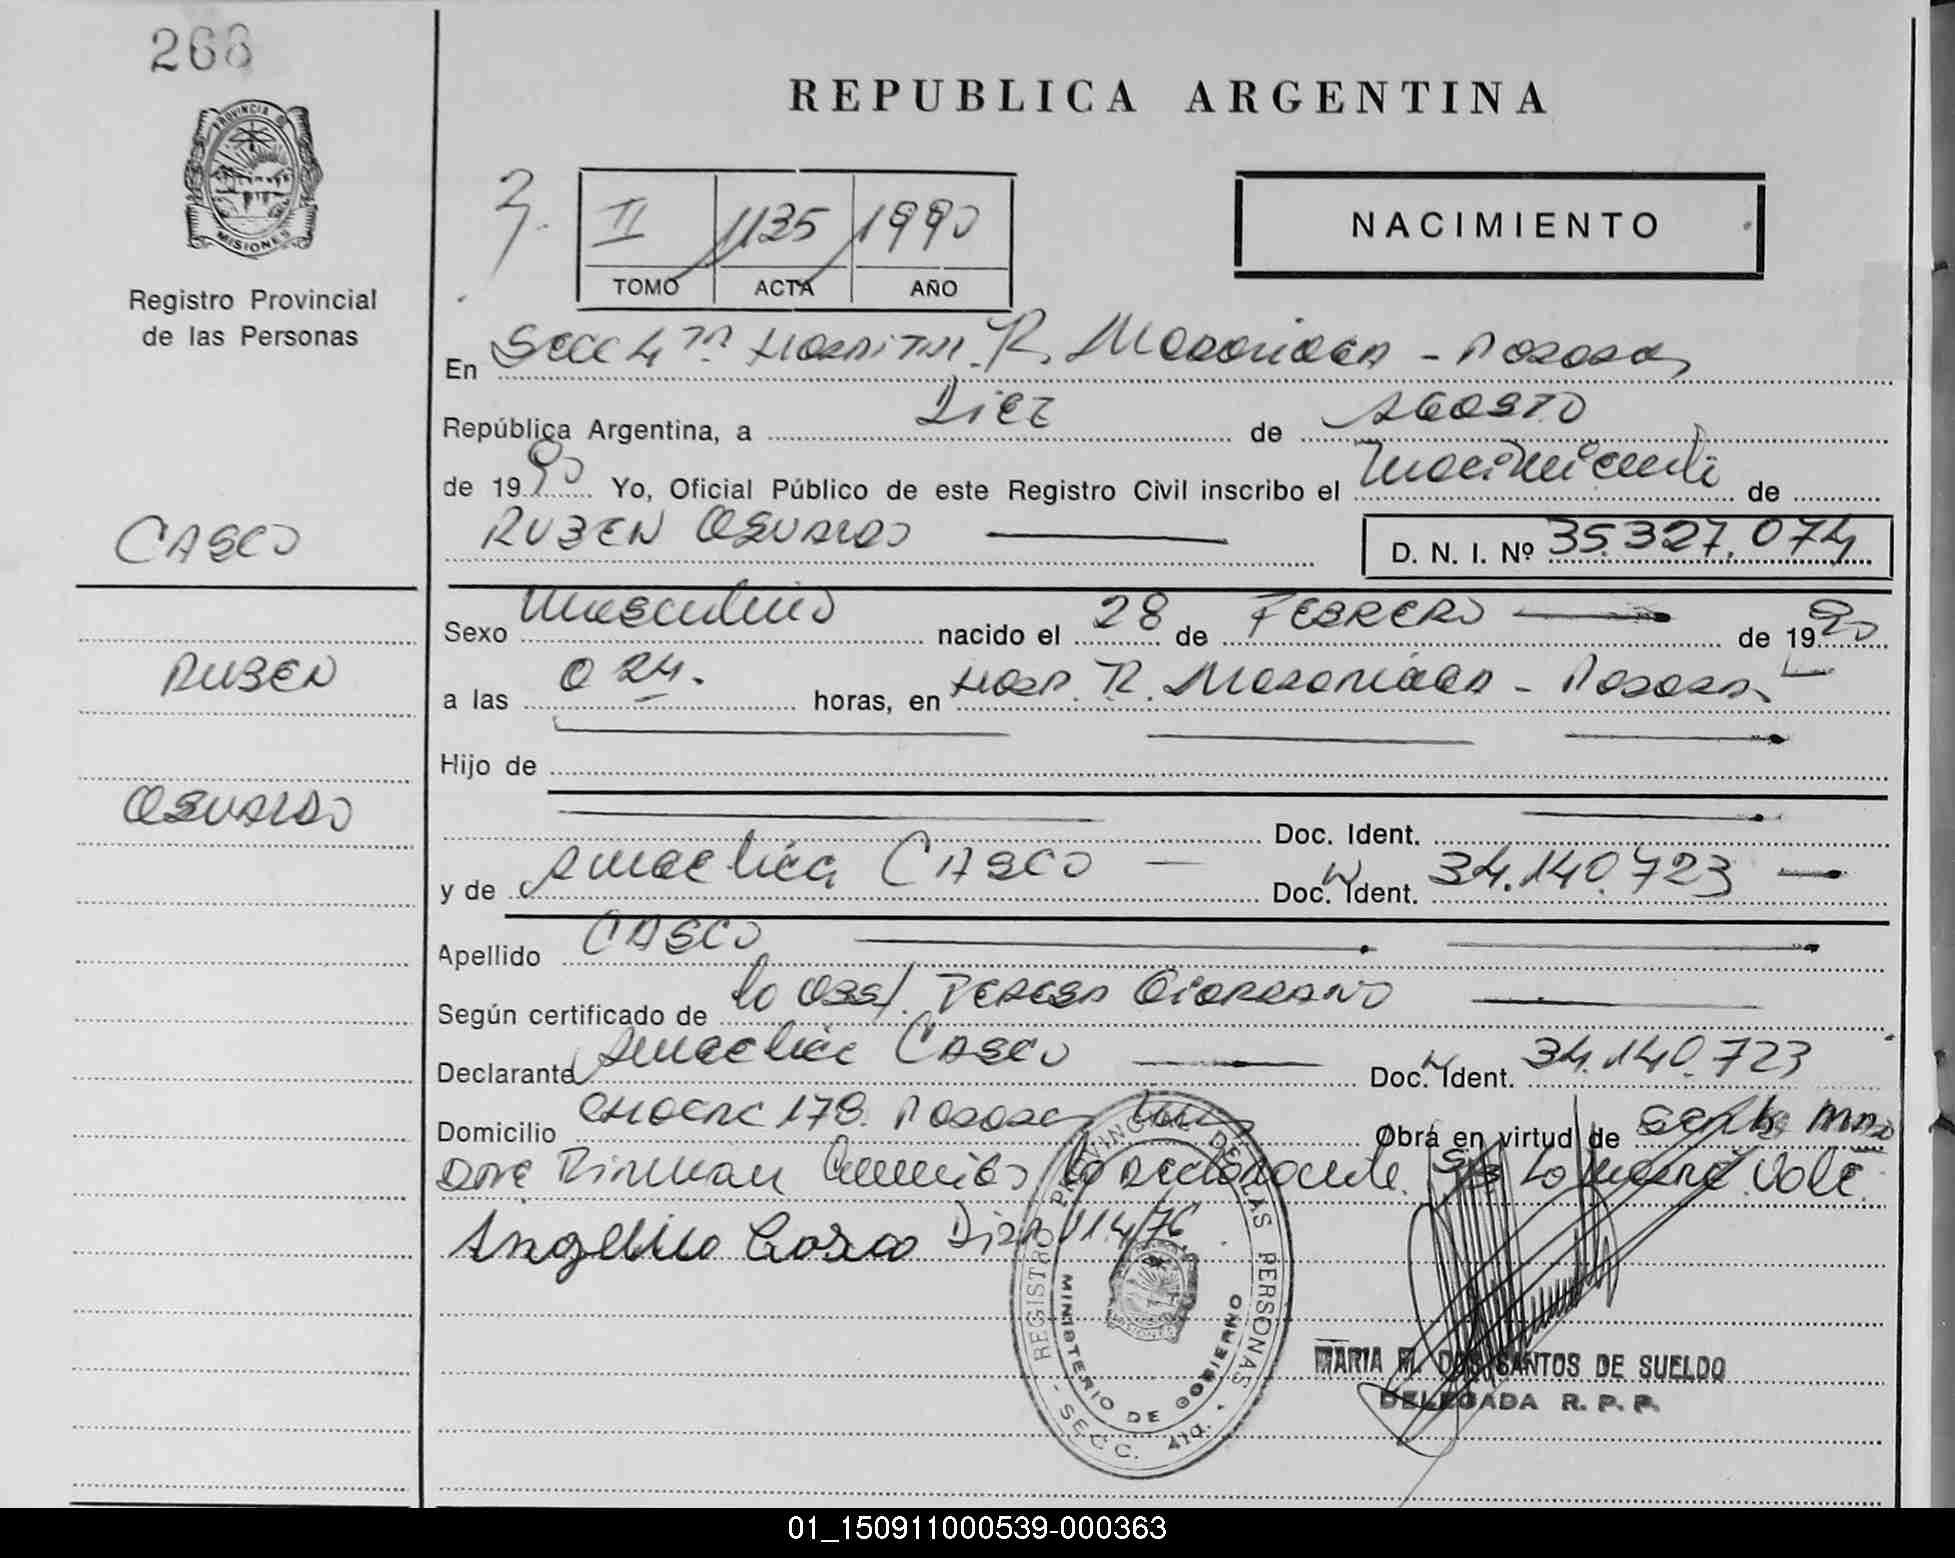 268
REPUBLICA ARGENTINA
PROVINCIA DE
MISIONES
Registro Provincial
de las Personas
II 1135 1990
TOMO ACTA AÑO
NACIMIENTO
En Secc 4ta Hospital R. Madariaga - Posadas
República Argentina, a Diez de Agosto
de 1990 Yo, Oficial Público de este Registro Civil inscribo el nacimiento de
CASCO
RUBEN OSVALDO
D. N. I. Nº 35.327.074
Sexo masculino nacido el 28 de FEBRERO de 1990
RUBEN
a las 0 24. horas, en Hosp. R. Madariaga - Posadas
Hijo de
OSVALDO
Doc. Ident.
y de Amaelia CASCO Doc. Ident. 34.140.723
Apellido CASCO
Según certificado de la Obst. Teresa Giordano
Declarante Amaelia Casco Doc. Ident. 34.140.723
Domicilio 178. Posadas Obra en virtud de
la declarante. Vale.
Casco 114/76
REGISTRO PROVINCIAL DE LAS PERSONAS
MINISTERIO DE GOBIERNO
SECC. 4ta.
MARIA M. DOS SANTOS DE SUELDO
DELEGADA R. P. P.
01_150911000539-000363